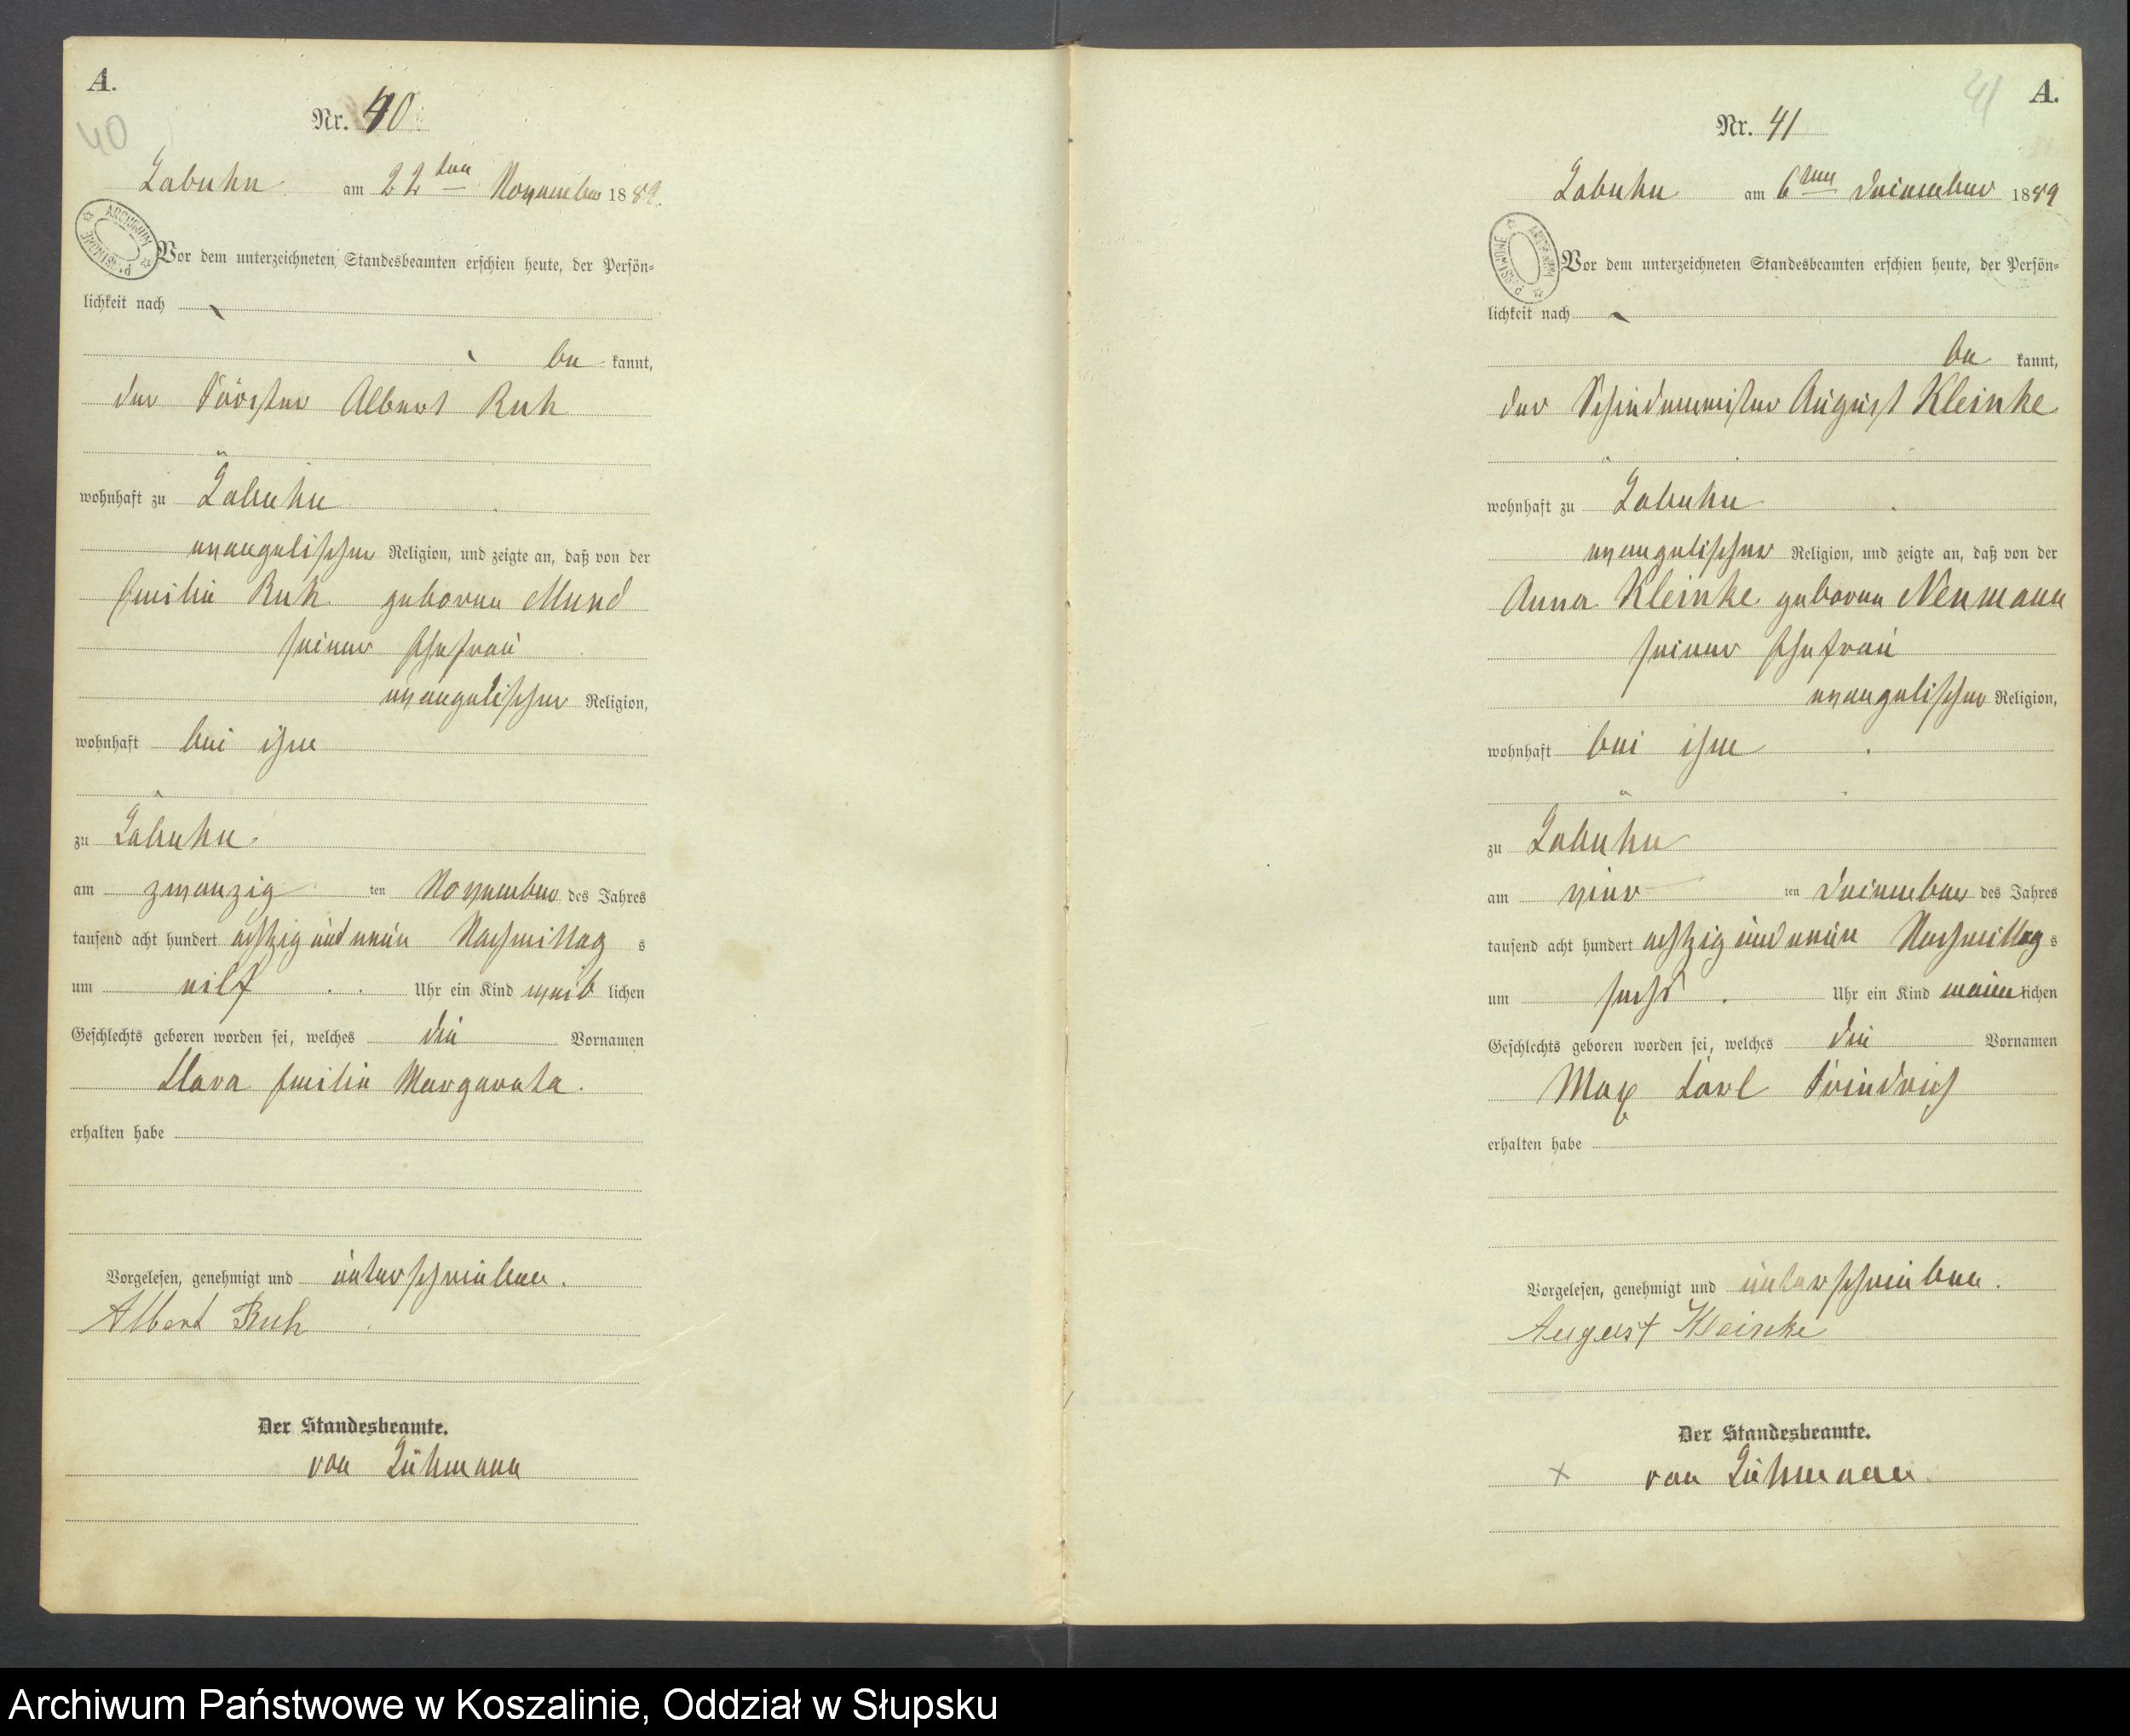 A.
40
Nr. 40
Labuhn am 22ten November 1889.
ARCHIWUM PAŃSTWOWE
Vor dem unterzeichneten Standesbeamten erschien heute, der Persön=
lichkeit nach
be kannt,
der Förster Albert Ruh
wohnhaft zu Labuhn
evangelischer Religion, und zeigte an, daß von der
Emilie Ruh geborne Mund
seiner Ehefrau
evangelischer Religion,
wohnhaft bei ihm
zu Labuhn
am zwanzig ten November des Jahres
tausend acht hundert achtzig und neun Nachmittag s
um elf Uhr ein Kind weib lichen
Geschlechts geboren worden sei, welches die Vornamen
Clara Emilie Margareta.
erhalten habe
Vorgelesen, genehmigt und unterschrieben.
Albert Ruh
Der Standesbeamte.
von Lühmann
41
A.
Nr. 41
Labuhn am 6ten Dezember 1889
ARCHIWUM PAŃSTWOWE
Vor dem unterzeichneten Standesbeamten erschien heute, der Persön=
lichkeit nach
be kannt,
der August Kleinke
wohnhaft zu Labuhn
evangelischer Religion, und zeigte an, daß von der
Anna Kleinke geborne Neumann
seiner Ehefrau
evangelischer Religion,
wohnhaft bei ihm
zu Labuhn
am vier ten Dezember des Jahres
tausend acht hundert achtzig und neun Nachmittag s
um sechs Uhr ein Kind männ lichen
Geschlechts geboren worden sei, welches die Vornamen
Max Carl Friedrich
erhalten habe
Vorgelesen, genehmigt und unterschrieben.
August Kleinke
Der Standesbeamte.
von Lühmann
Archiwum Państwowe w Koszalinie, Oddział w Słupsku